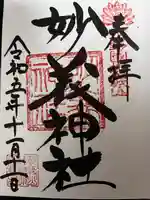 奉拝
妙義神社
令和五年十一月十一日